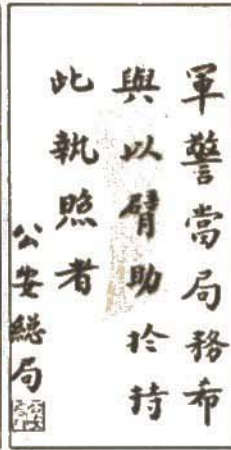 軍警當局務布
與以臂助於持
此執照者
公安總局